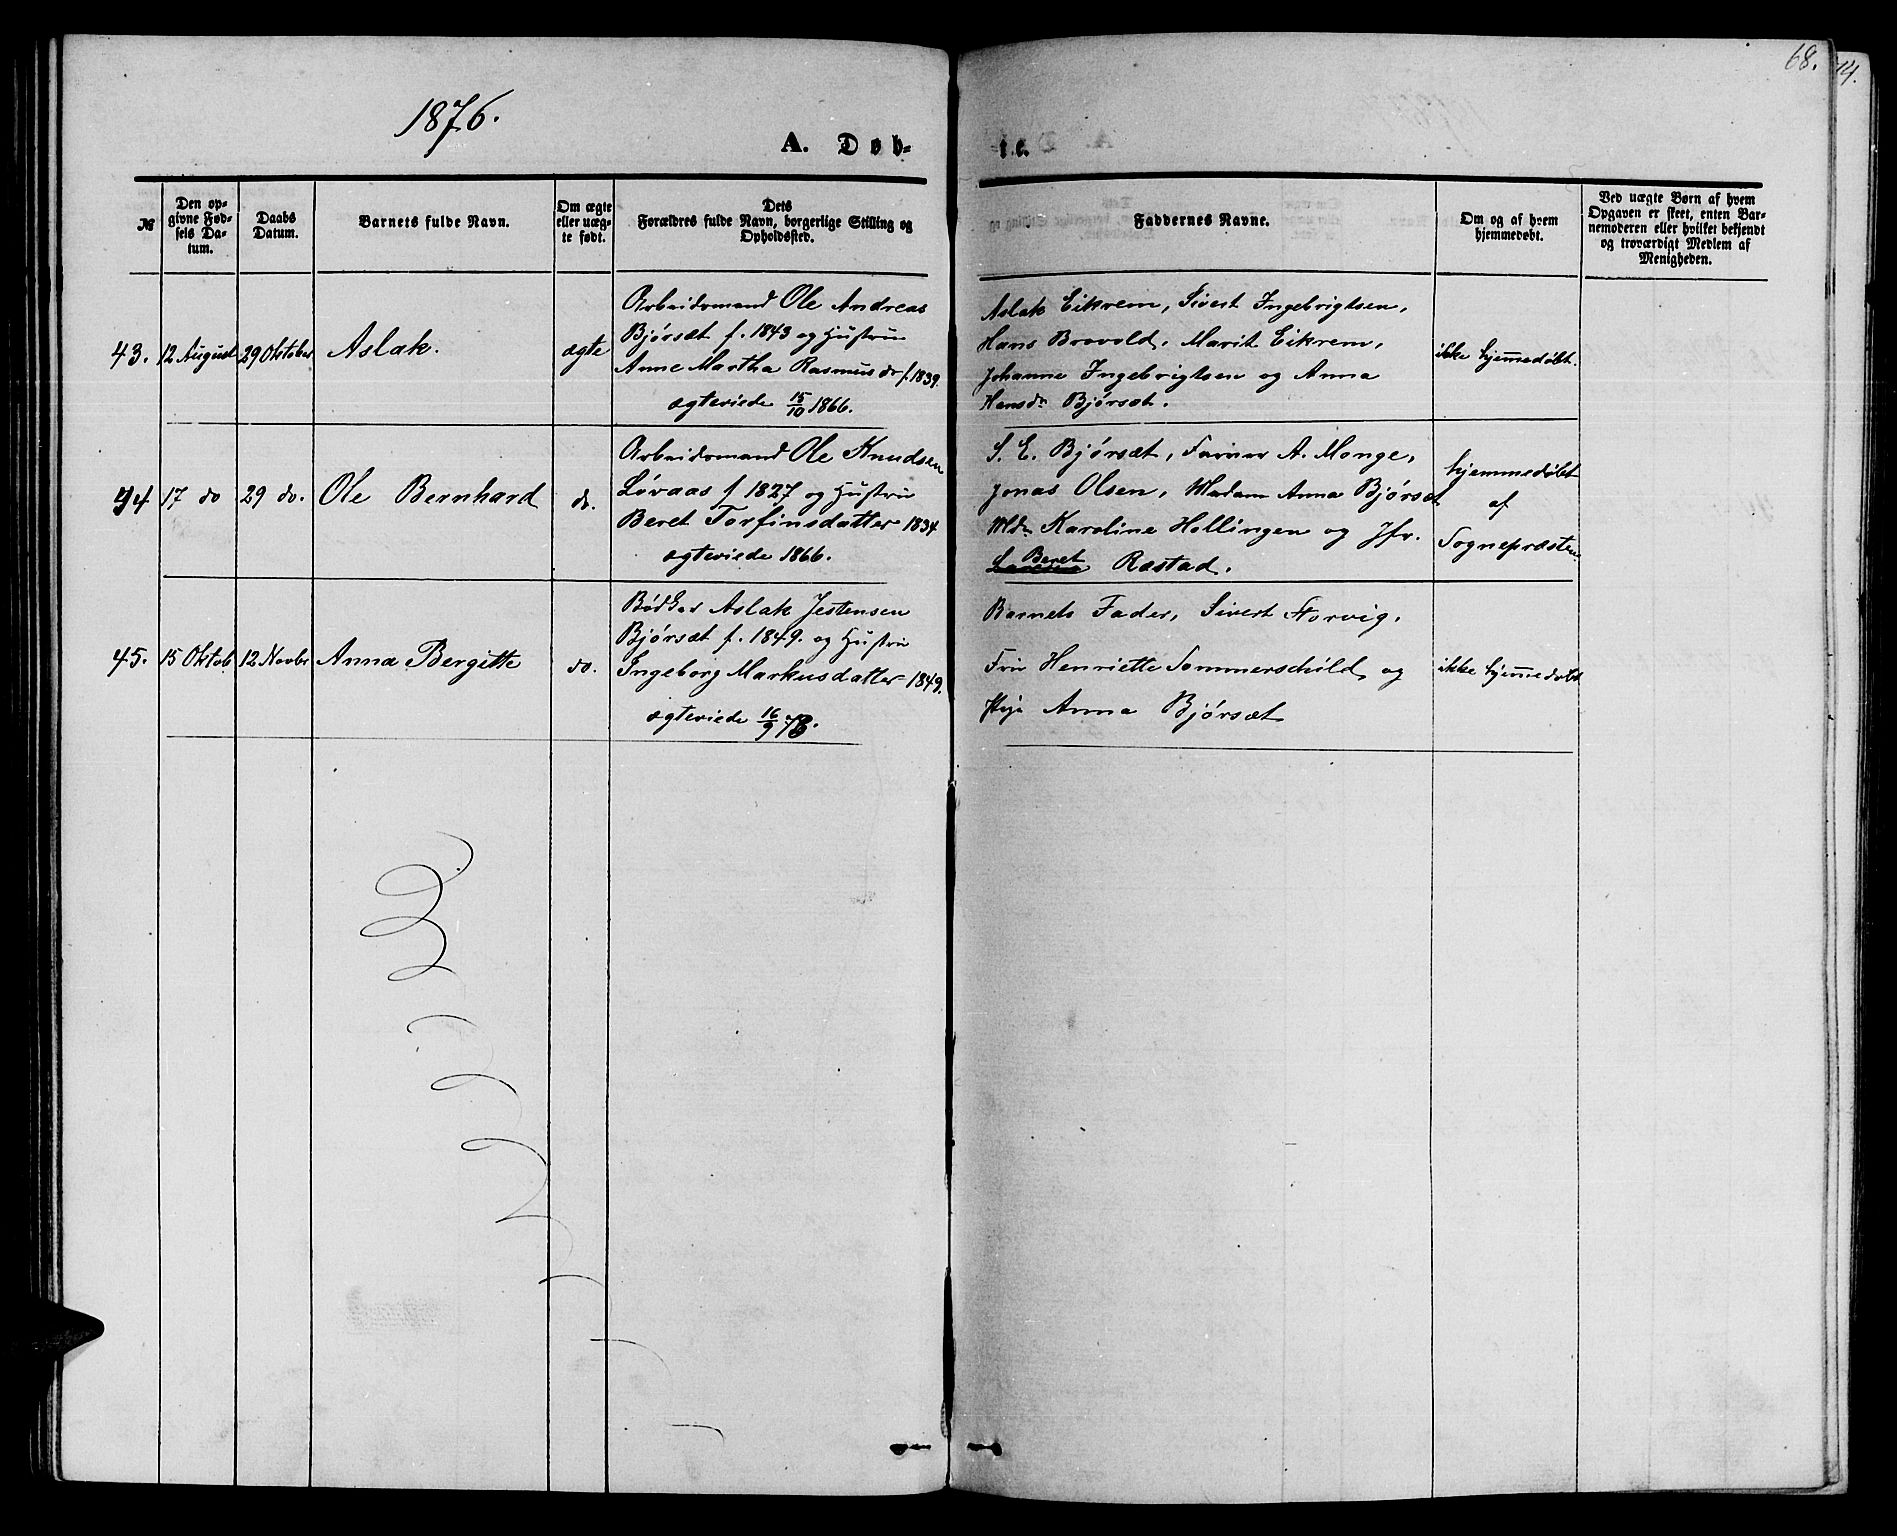 68.
14.
1876.
A. Døb-
te.
№
Den op-
givne Fød-
sels Da-
tum.
Daabs
Datum.
Barnets fulde Navn.
Om ægte
eller uæg-
te født.
Dets
Forældres fulde Navn, borgerlige Stilling og
Opholdssted.
Faddernes Navne.
Om og af hvem
hjemmedøbt.
Ved uægte Børn af hvem
Opgaven er skeet, enten Bar-
nemoderen eller hvilket bekjendt
og troværdigt Medlem af
Menigheden.
43. 12 August 29 Oktober Aslak. ægte
Arbeidsmand Ole Andreas
Bjørsæt f. 1843 og Hustru
Anne Martha Rasmusdr f. 1839.
ægteviede 15/10 1866.
Aslak Eikrem, Sivert Ingebrigtsen,
Hans Brovold, Marit Eikrem,
Johanne Ingebrigtsen og Anna
Hansdr Bjørsæt.
ikke hjemmedøbt.
44 17 do 29 do. Ole Bernhard do.
Arbeidsmand Ole Knudsen
Løvaas f 1827 og Hustru
Beret Torfinsdatter 1834
ægteviede 1866.
S. E. Bjørsæt, Farver A. Monge,
Jonas Olsen, Madam Anna Bjørsæt
Mdm Karoline Hollingen og Jfr.
Beret Røstad.
hjemmedøbt
af
Sognepræsten
45. 15 Oktob 12 Novbr Anna Bergitte do.
Bødker Aslak Jestensen
Bjørsæt f. 1849. og Hustru
Ingeborg Markusdatter 1849.
ægteviede 16/9 76.
Barnets Fader, Sivert Storvig,
Fru Henriette Sommerschild og
Pige Anna Bjørsæt
ikke hjemmedøbt